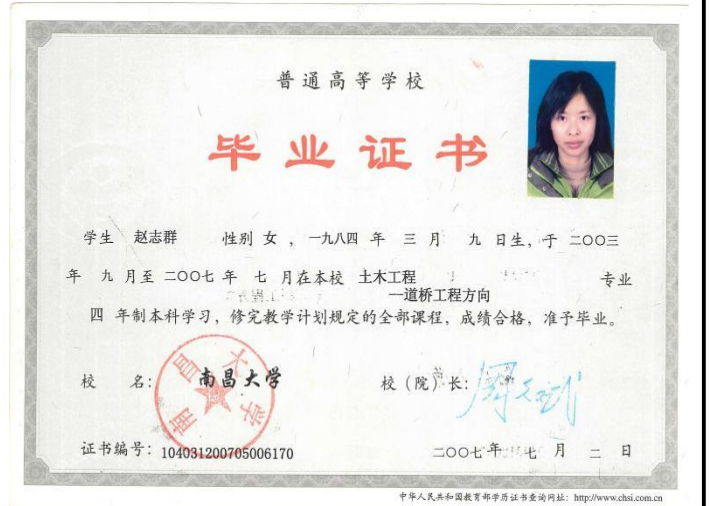 普通高等学校
毕业证书
学生 赵志群 性别 女 ，一九八四 年 三 月 九 日生，于 二〇〇三
年 九 月至 二〇〇七 年 七 月在本校 土木工程 专业
—道桥工程方向
四 年制本科学习，修完教学计划规定的全部课程，成绩合格，准予毕业。
校 名： 南昌大学 校（院）长：
南昌大学
证书编号：104031200705006170 二〇〇七年 七 月 二 日
中华人民共和国教育部学历证书查询网址：http://www.chsi.com.cn